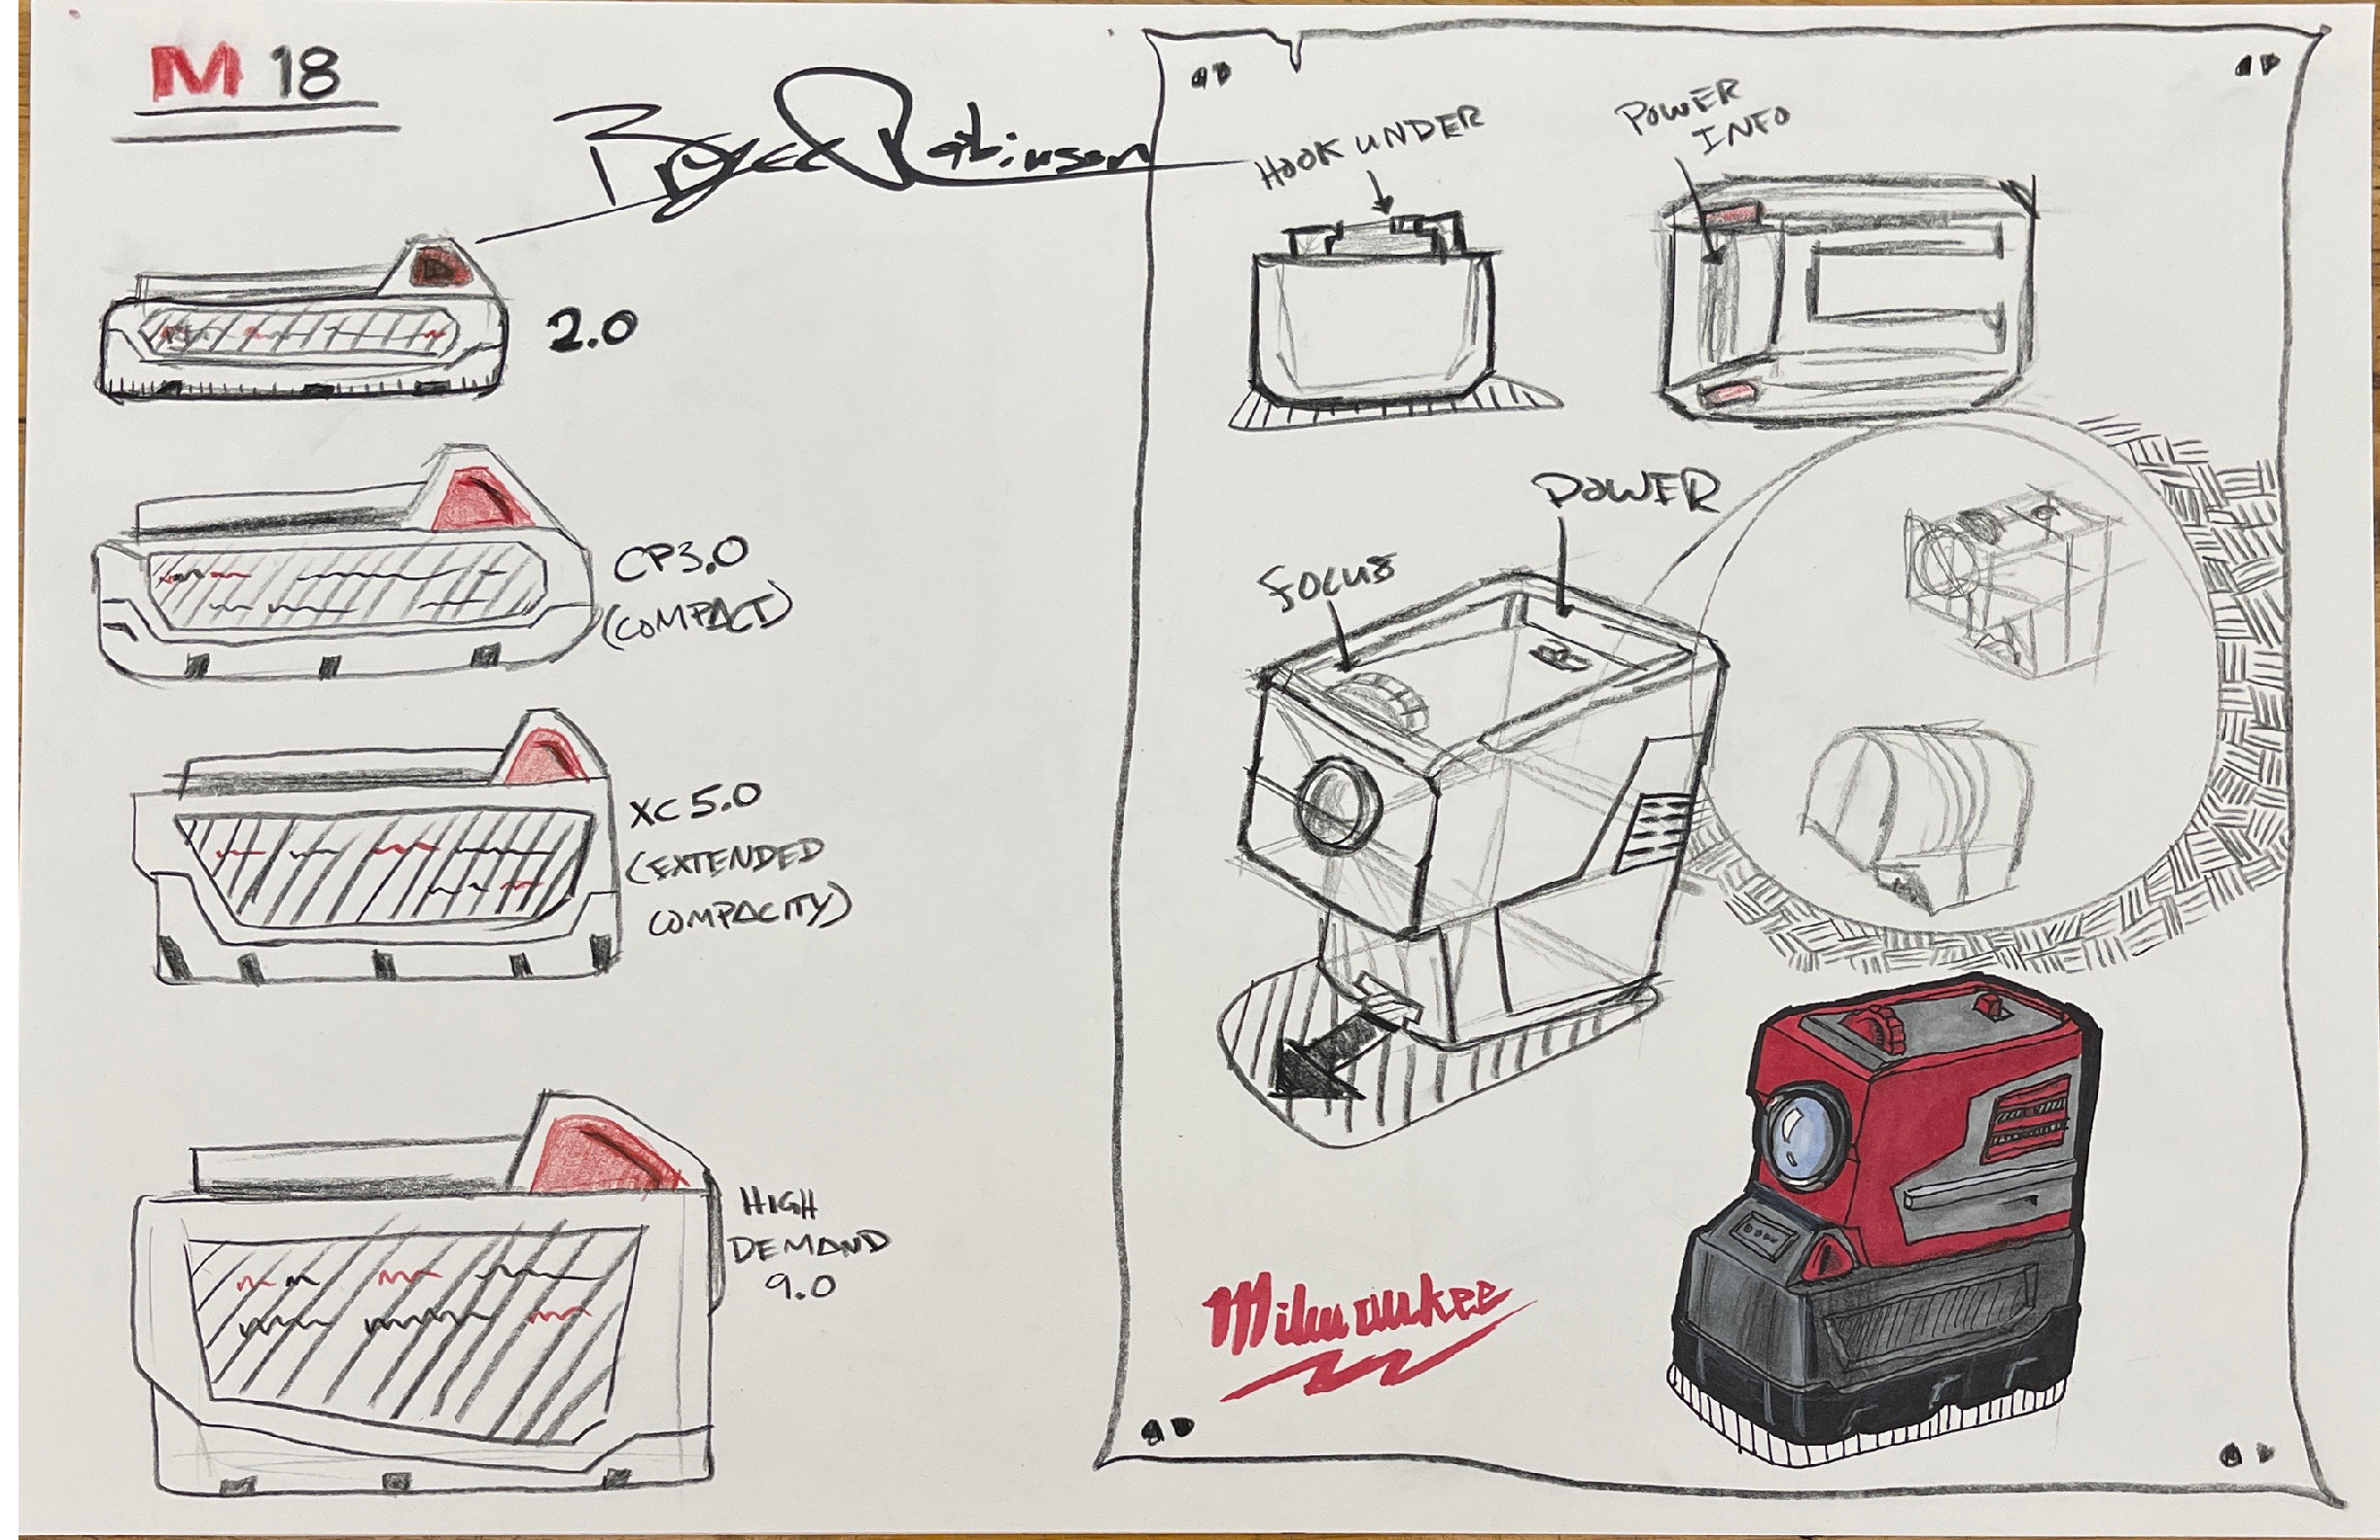 M 18
Bryce Robinson
2.0
CP3.0
(COMPACT)
XC 5.0
(EXTENDED
COMPACITY)
HIGH
DEMAND
9.0
HOOK UNDER
POWER
INFO
POWER
FOCUS
Milwaukee